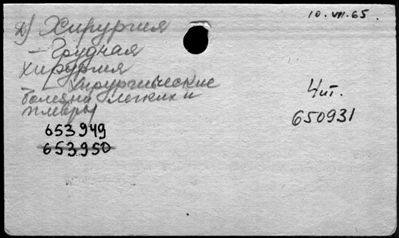 10.VII.65.
д) Хирургия
– Грудная
хирургия
Хирургические
болезни легких и
плевры
4 шт.
653949
653950
650931